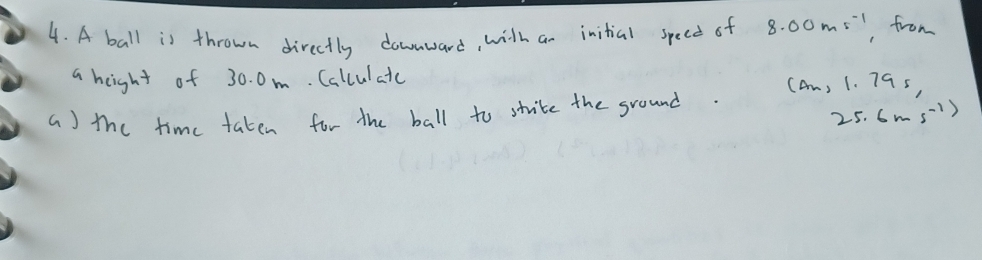 4. A ball is thrown directly downward, with an initial speed of 8.00 m s⁻¹, from
a height of 30.0 m. Calculate
a) the time taken for the ball to strike the ground. (Ans 1.79 s,
25.6 m s⁻¹)